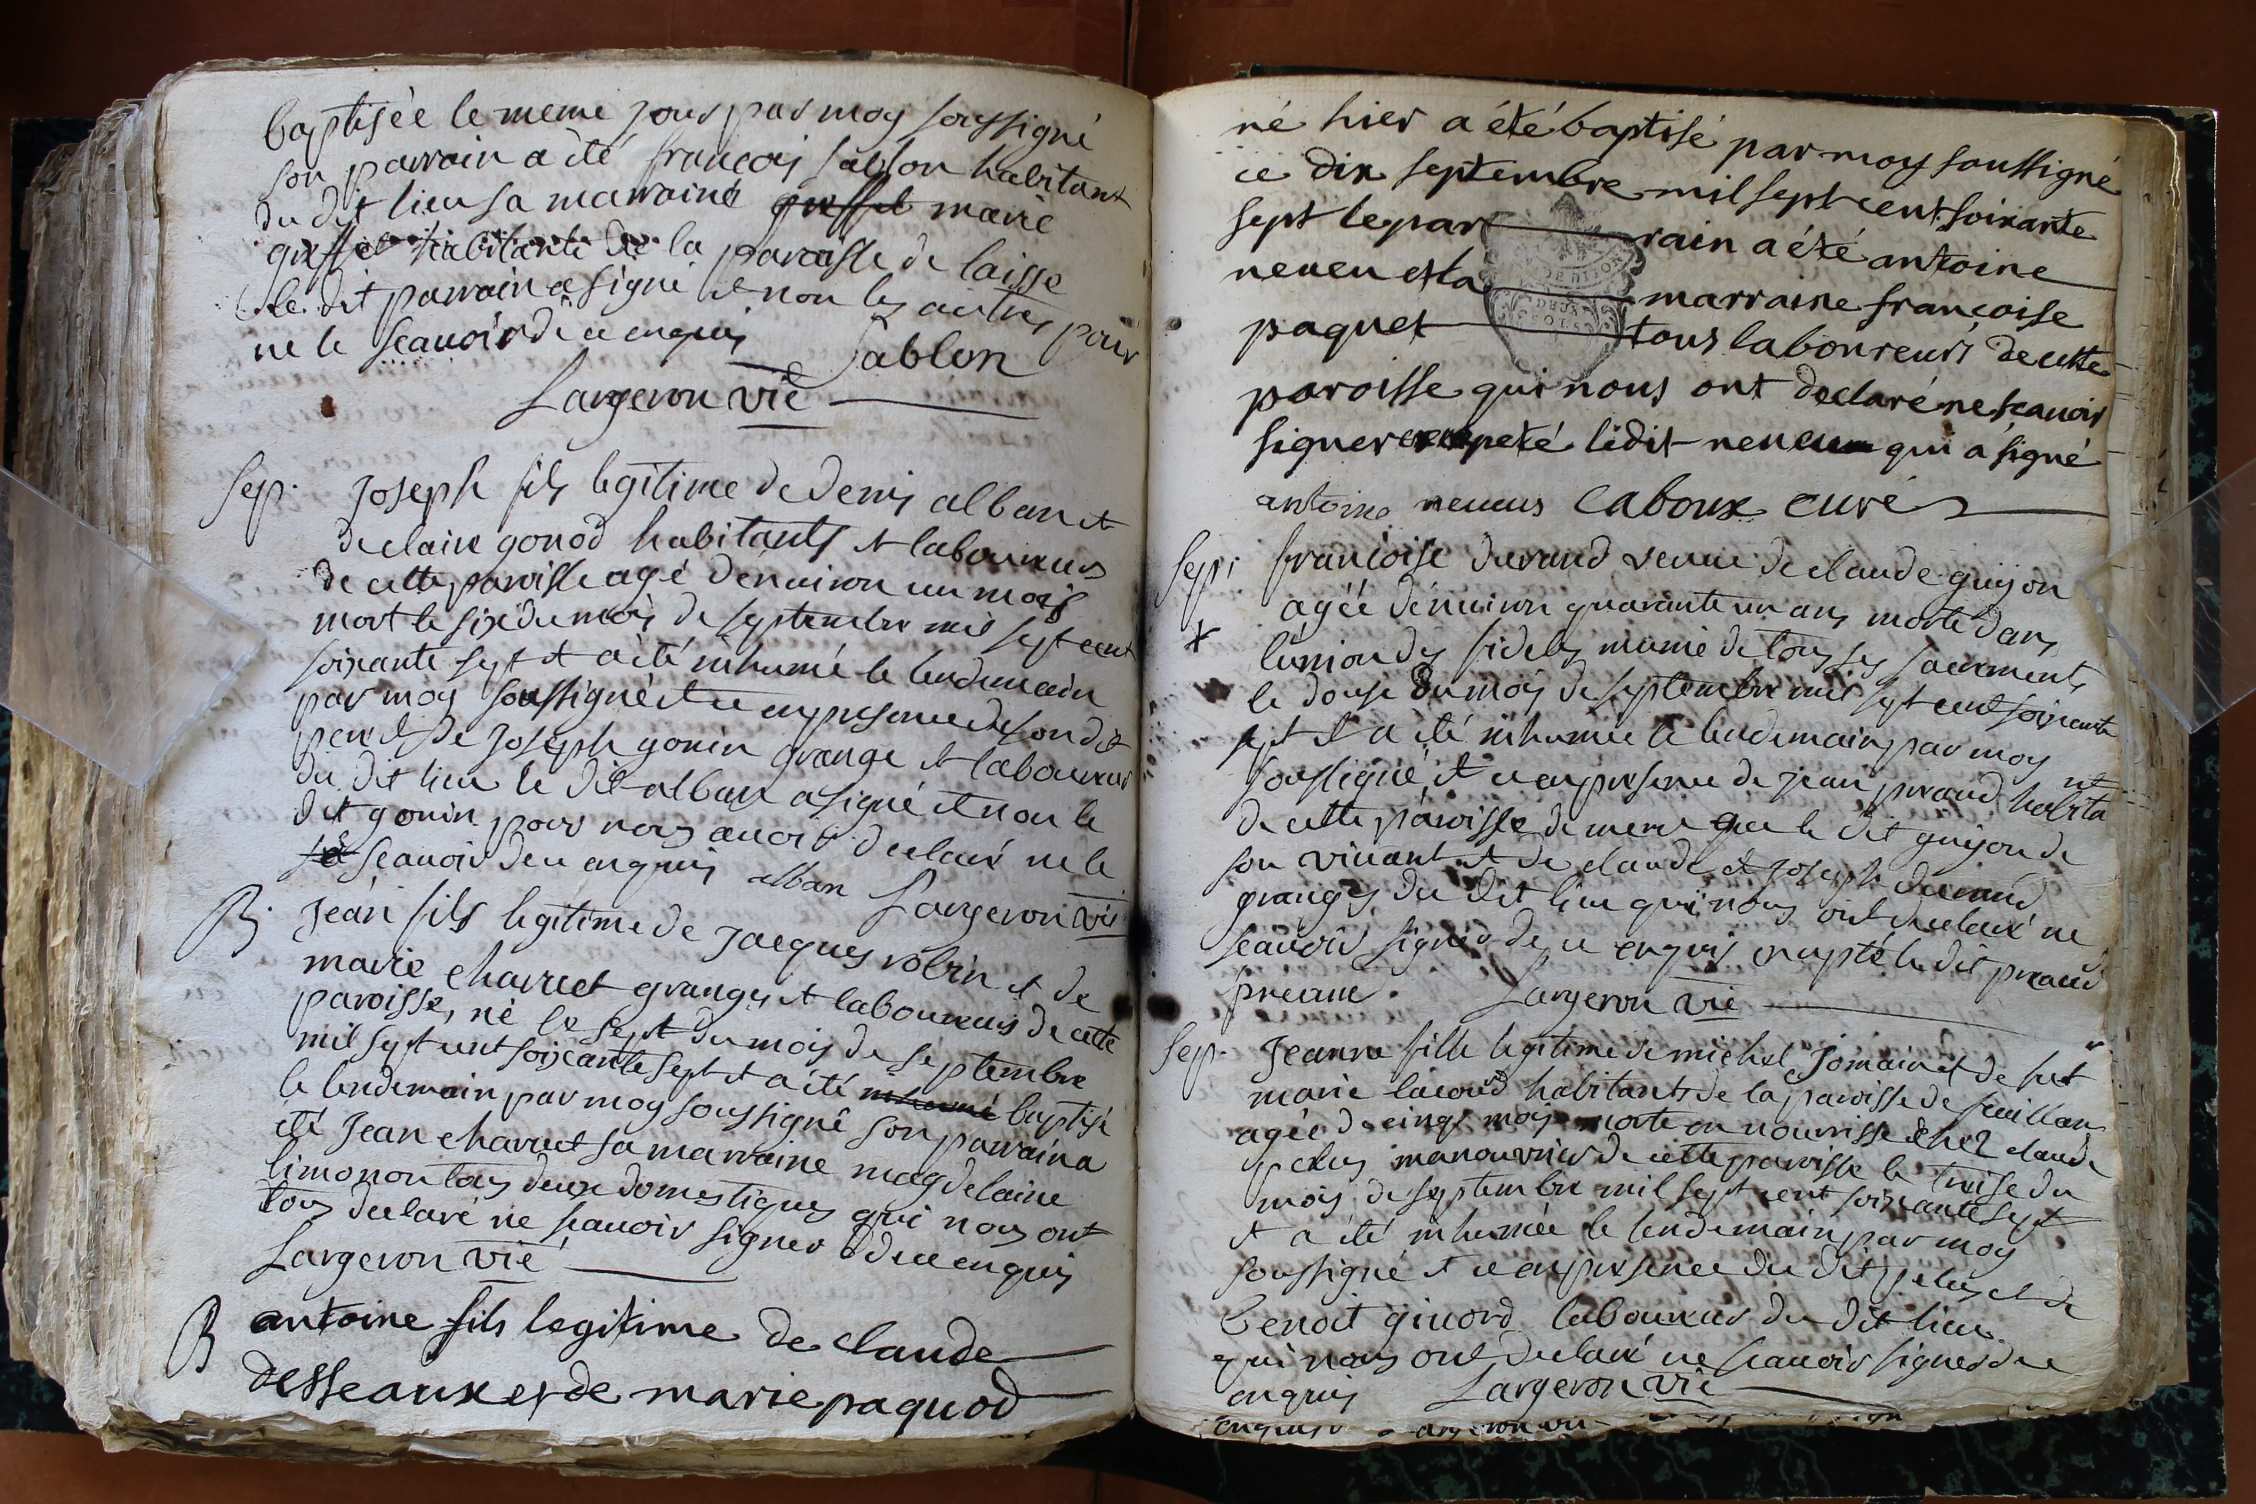 baptisée le meme jour par moy soussigné
son parrain a été françois sablon habitant
du dit lieu sa marraine greffet marie
greffet habitante de la paroisse de laisse
le dit parrain a signé et non les autres pour
ne le scauoir de ce enquis Sablon
Largeron vic
Sep. Joseph fils legitime de denis alban et
de claire gonod habitants et laboureurs
de cette paroisse agé d'enuiron un mois
mort le six du mois de septembre mil sept cent
soixante sept et a été inhumé le lendemain
par moy soussigné et ce en presence de son dit
pere et de Joseph gonin grange et laboureur
du dit lieu le dit alban a signé et non le
dit gonin pour nous auoir declaré ne le
scauoir de ce enquis alban Largeron vic
B. Jean fils legitime de Jacques robin et de
marie charuet granges et laboureurs de cette
paroisse, né le sept du mois de septembre
mil sept cent soixante sept et a été inhumé baptisé
le lendemain par moy soussigné son parrain a
été Jean charuet sa marraine magdelaine
limonon tous deux domestiques qui nous ont
tous declaré ne scauoir signer de ce enquis
Largeron vic
B antoine fils legitime de claude
desseaux et de marie paquod
né hier a été baptisé par moy soussigné
ce dix septembre mil sept cent soixante
sept le parrain a été antoine
neueu et la marraine françoise
paquet tous laboureurs de cette
paroisse qui nous ont declaré ne scauoir
signer excepté ledit neueu qui a signé
antoine neueus caboux curé
Sep. francoise durand veuue de claude guijon
agée d'enuiron quarante un ans morte dans
l'union des fideles munie de tous ses sacrements
le douse du mois de septembre mil sept cent soixante
sept et a été inhumée le lendemain par moy
soussigné, et ce en presence de jean preaud habitant
de cette paroisse de meme que le dit guijon de
son viuant et de claude et Joseph durand
granges du dit lieu qui nous ont declaré ne
scauoir signer de ce enquis excepté le dit preaud
preaud. Largeron vic
Sep. Jeanne fille legitime de michel Jomain et de
marie lacour habitants de la paroisse de
agée de cinq mois morte en nourrisse chez claude
pelus manouurier de cette paroisse le treise du
mois de septembre mil sept cent soixante sept
et a été inhumée le lendemain par moy
soussigné et ce en presence du dit pelus et de
Benoit giuord laboureur du dit lieu
qui nous ont declaré ne scauoir signer de ce
enquis Largeron vic